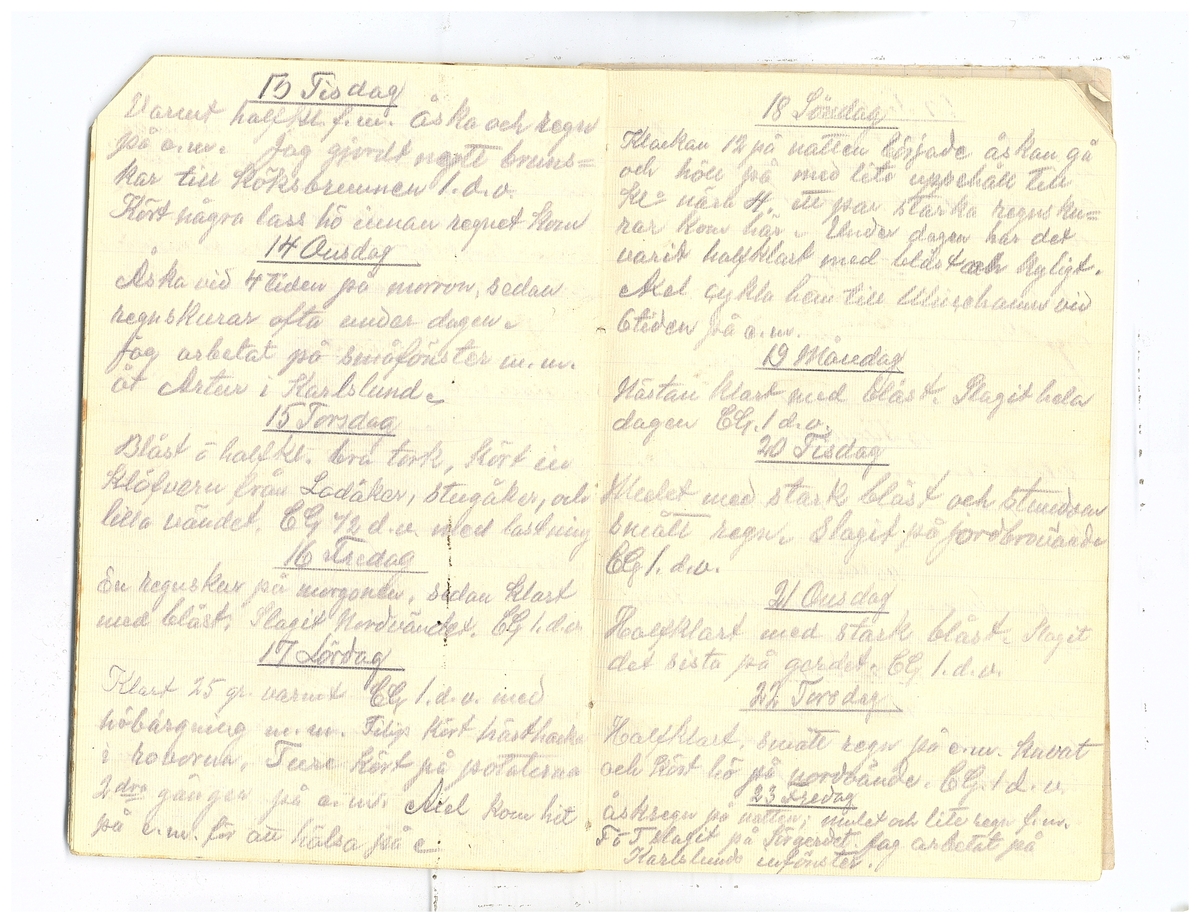 13 Tisdag
Varmt halfkl. f.m. Åska och regn
på e.m. Jag gjordt nytt bruns=
kar till Köksbrunnen 1. d.v.
Kört några lass hö innan regnet kom
14 Onsdag
Åska vid 4 tiden på morron, sedan
regnskurar ofta under dagen.
Jag arbetat på småfönster m.m.
åt Artur i Karlslund.
15 Torsdag
Blåst o halfkl. bra tork, Kört in
Klöfvern från Ladåker, stugåker, och
lilla vändet. EG 1/2 d.v. med lastning
16 Fredag
En regnskur på morgonen, sedan klart
med blåst. Slagit Nordvändet. EG 1.d.v
17 Lördag
Klart 25 gr. varmt EG 1.d.v. med
höbärgning m.m. Filip Kört hästhacka
i rovorna. Ture Kört på potaterna
2dra gången på e.m. Axel kom hit
på e.m. för att hälsa på
18 Söndag
Klockan 12 på natten började åskan gå
och höll på med lite uppehåll till
Kl. nära 4. ett par starka regnsku=
rar kom här. Under dagen har det
varit halfklart med blåst och Kyligt.
Axel cykla hem till vid
6 tiden på e.m.
19 Måndag
Nästan klart med blåst. Slagit hela
dagen EG. 1 d.v.
20 Tisdag
Mulet med stark blåst och stundom
smått regn. Slagit på jordbrovände
EG 1. d.v.
21 Onsdag
Halfklart med stark blåst. Slagit
det sista på gerdet. EG 1. d.v.
22 Torsdag
Halfklart. smått regn på e.m. Kuvat
och Kört hö på nordvände. EG. 1 d. v.
23 Fredag
åskregn på natten; mulet och lite regn f.m.
F o T slagit på Sörgerdet. Jag arbetat på
Karlslunds fönster.